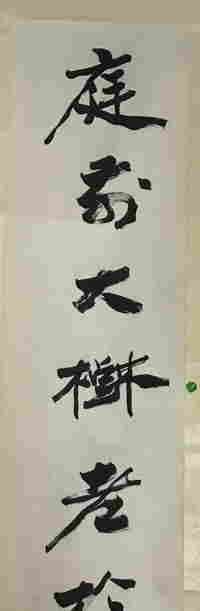 庭前大樹老於